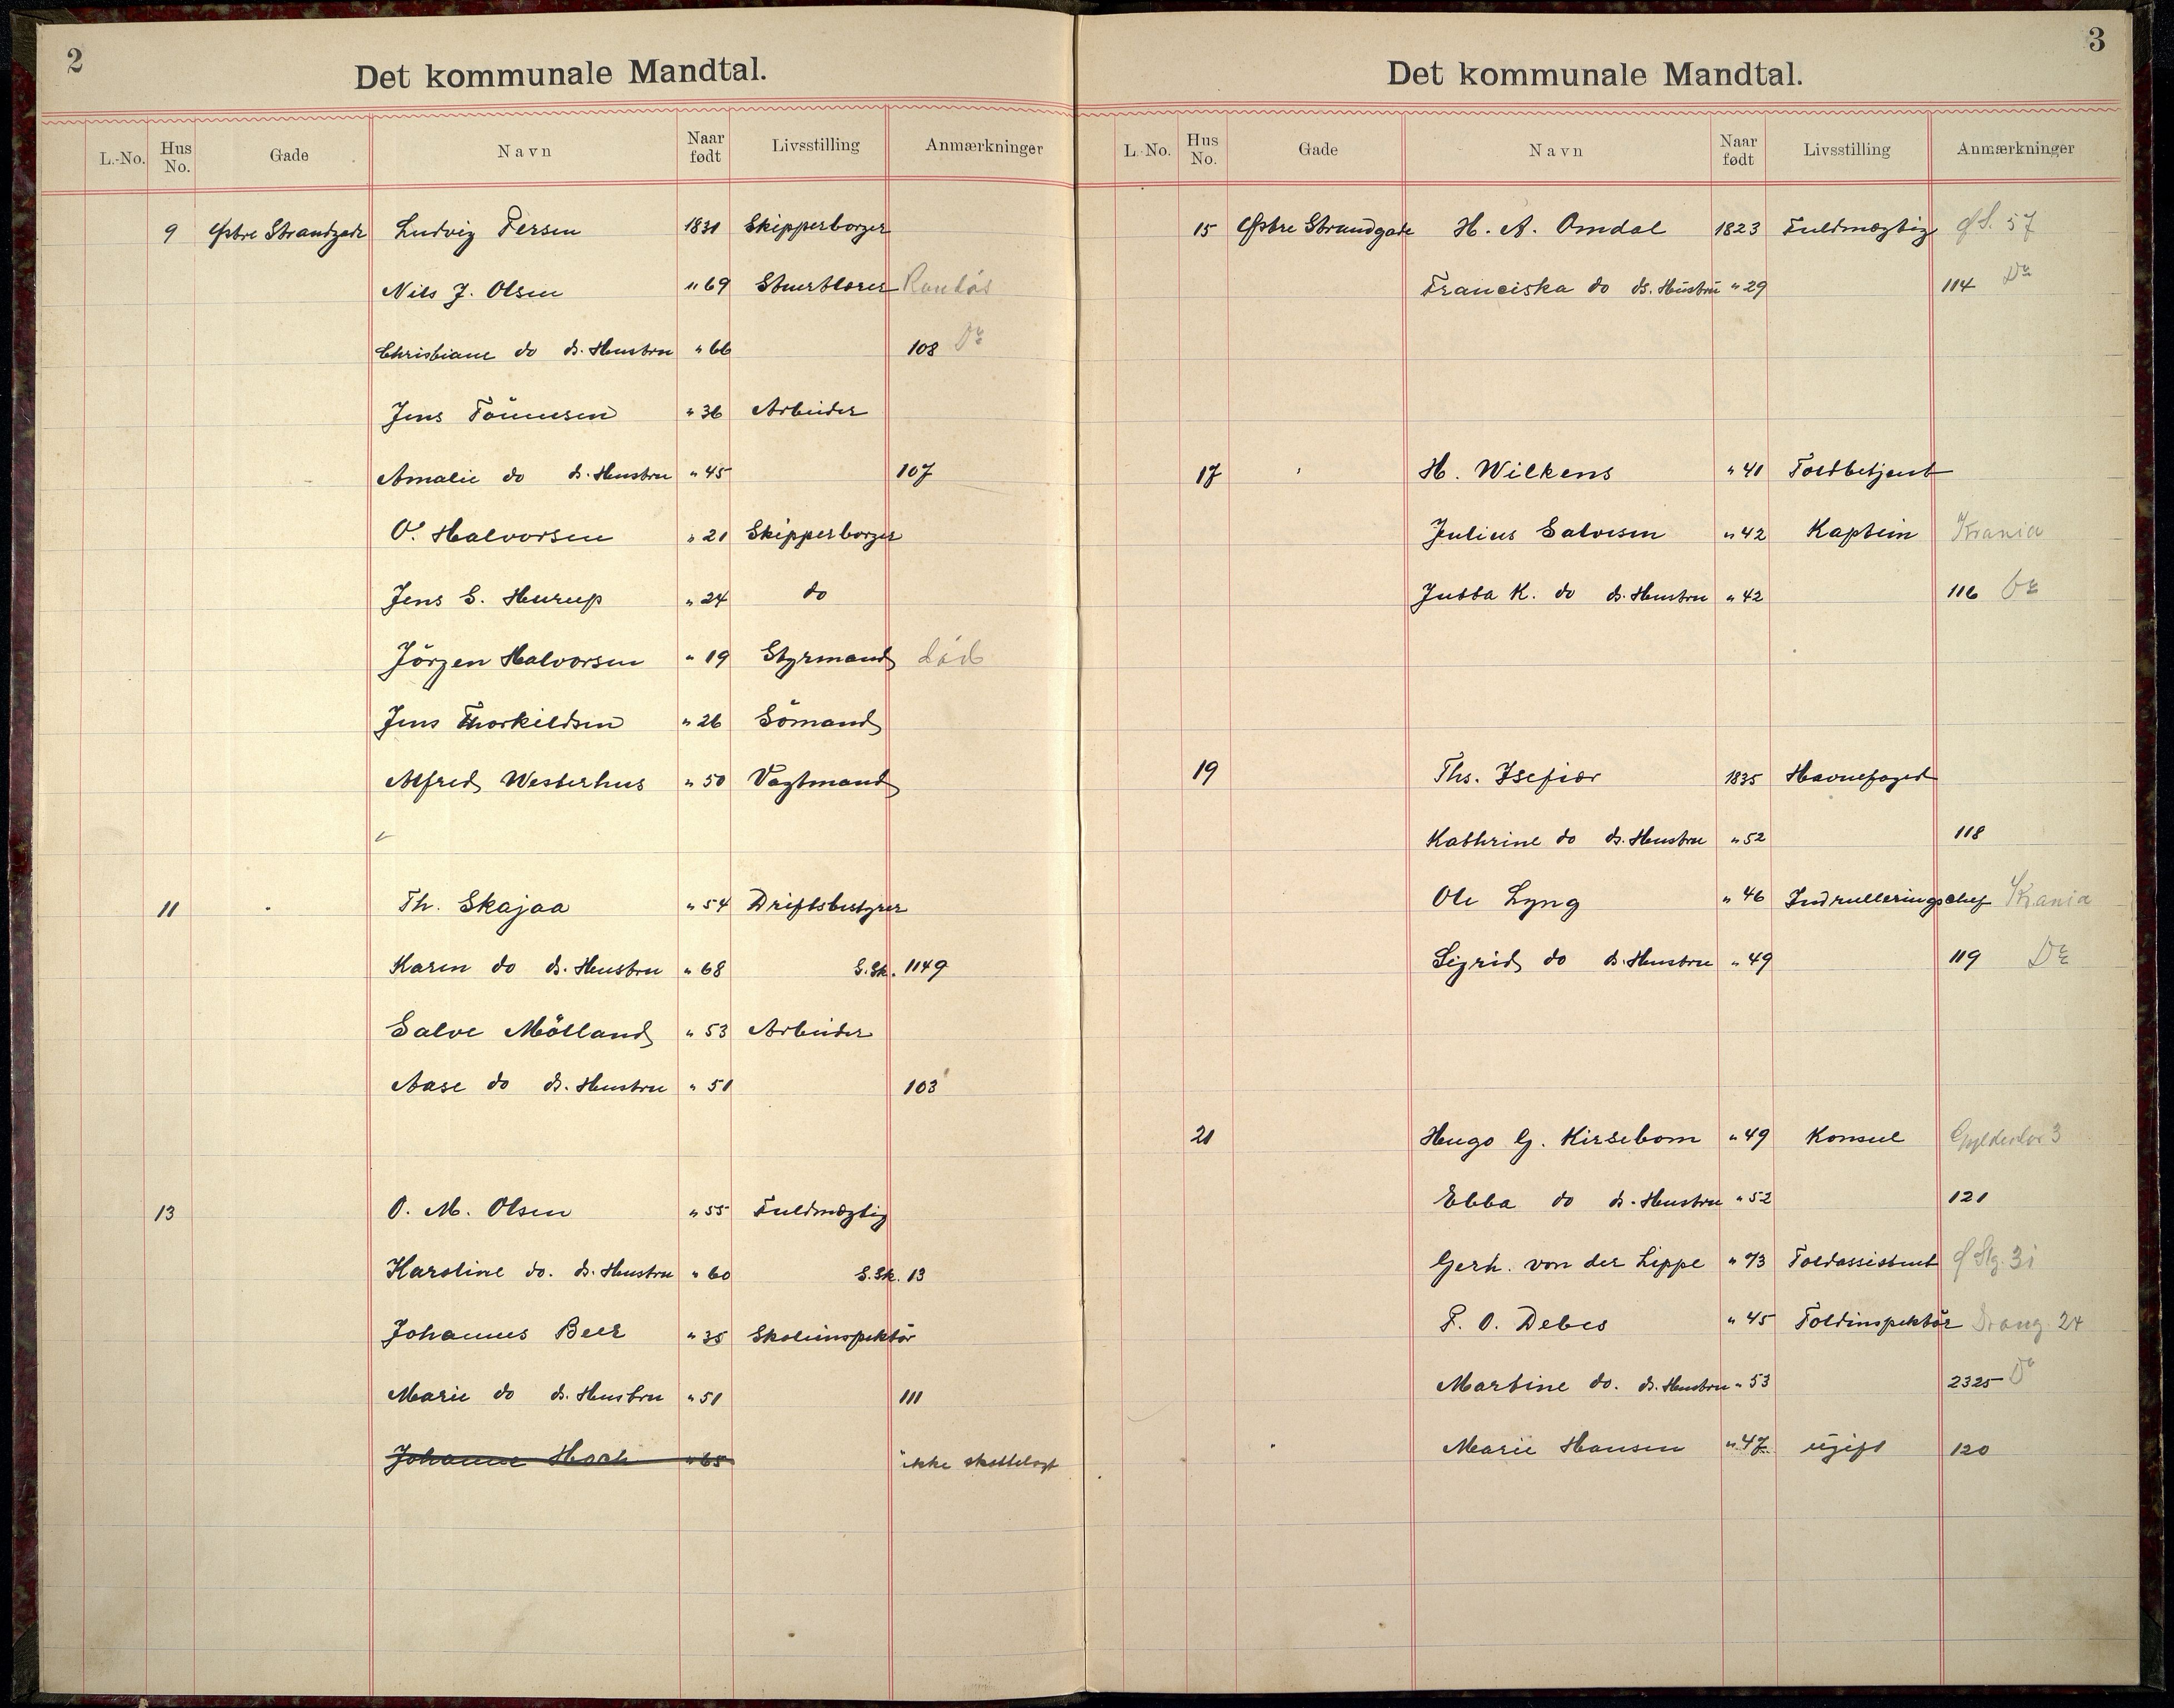 2
Det kommunale Mandtal.
L.-No. Hus No. Gade Navn Naar født Livsstilling Anmærkninger
9 Østre Strandgade Ludvig Fersen 1831 Skipperborger
Nils J. Olsen " 69 Stuertlærer Randøs
Christiane do ds. Hustru " 66 108 Do
Jens Tönnesen " 36 Arbeider
Amalie do ds. Hustru " 45 107
O. Halvorsen " 21 Skipperborger
Jens S. Heurup " 24 do
Jörgen Halvorsen " 19 Styrmand död
Jens Thorkildsen " 26 Sömand
Alfred Westerhus " 50 Vagtmand
11 " Th. Skajaa " 54 Driftsbestyrer
Karen do ds. Hustru " 68 S.Sk. 1149
Salve Mölland " 53 Arbeider
Aase do ds. Hustru " 51 103
13 O. M. Olsen " 55 Fuldmægtig
Karoline do. ds. Hustru " 60 S.Sk. 13
Johannes Beer " 35 Skoleinspektör
Marie do ds. Hustru " 51 111
Johanne Hoch " 65 ikke skattelagt
3
Det kommunale Mandtal.
L.-No. Hus No. Gade Navn Naar født Livsstilling Anmærkninger
15 Østre Strandgade H. A. Omdal 1823 Fuldmægtig Ø S. 57
Franciska do ds. Hustru " 29 114 Do
17 " H. Wilkens " 41 Toldbetjent
Julius Salvesen " 42 Kaptein Krania
Jutta K. do ds. Hustru " 42 116 Do
19 Ths. Isefiær 1835 Havnefoged
Kathrine do ds. Hustru " 52 118
Ole Lyng " 46 Indrulleringschef Krania
Sigrid do ds. Hustru " 49 119 Do
21 Hugo G. Kirsebom " 49 Konsul Gyldenløs 3
Ebba do ds. Hustru " 52 121
Gerh. von der Lippe " 73 Toldassistent Ø Stg. 31
F. O. Debes " 45 Toldinspektör Drong. 24
Martine do. ds. Hustru " 53 2325 Do
" Marie Hansen " 47 ugift 120